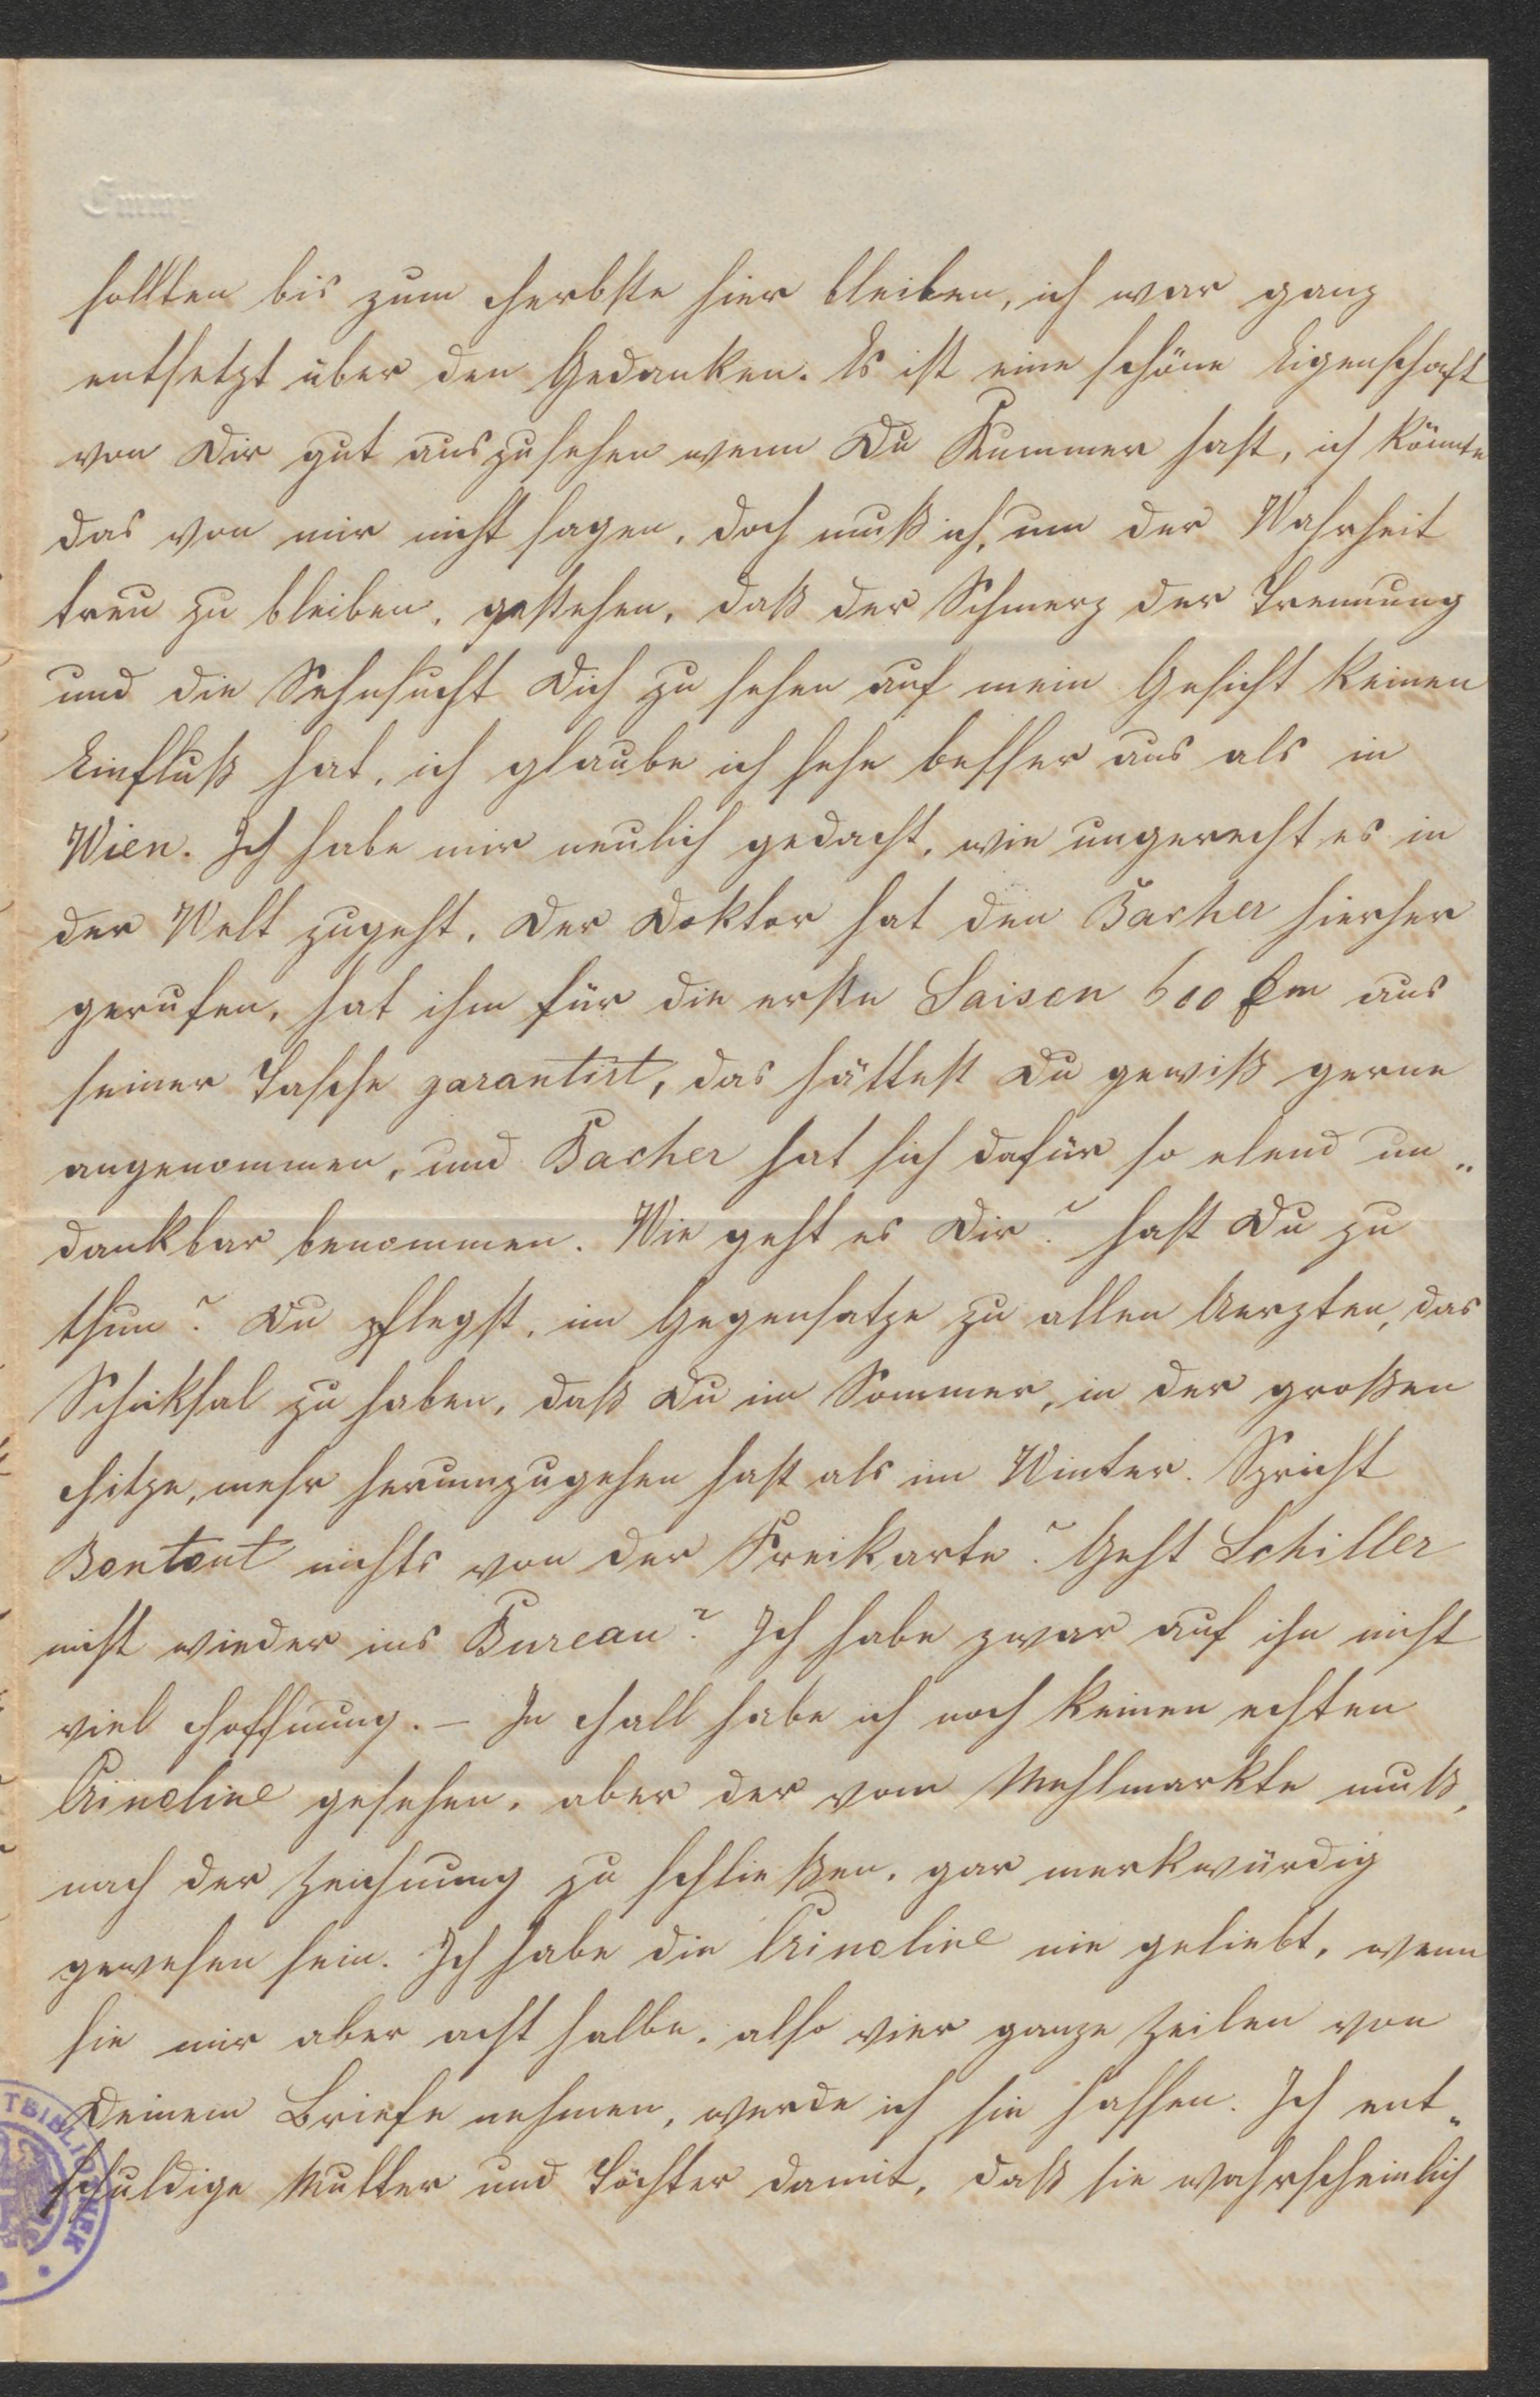 Emmy
sollten bis zum Herbste hier bleiben, ich war ganz
entsetzt über den Gedanken. Es ist eine schöne Eigenschaft
von Dir gut auszusehen wenn Du Kummer hast, ich könnte
das von mir nicht sagen, doch muß ich, um der Wahrheit
treu zu bleiben, gestehen, daß der Schmerz der Trennung
und die Sehnsucht Dich zu sehen auf mein Gesicht keinen
Einfluß hat, ich glaube ich sehe besser aus als in
Wien. Ich habe mir neulich gedacht, wie ungerecht es in
der Welt zugeht. Der Doktor hat den Bacher hierher
gerufen, hat ihm für die erste Saison 600 aus
seiner Tasche garantirt, das hättest Du gewiß gerne
angenommen, und Bacher hat sich dafür so elend un„
dankbar benommen. Wie geht es Dir? hast Du zu
thun? Du pflegst, im Gegensatze zu allen Aerzten, das
Schicksal zu haben, daß Du im Sommer, in der großen
Hitze, mehr herumzugehen hast als im Winter. Spricht
Bontout nichts von der Freikarte? Geht Schiller
nicht wieder ins Bureau? Ich habe zwar auf ihn nicht
viel Hoffnung. – In Hall habe ich noch keinen echten
Crinoline gesehen, aber der vom Mehlmarkte muß,
nach der Zeichnung zu schließen, gar merkwürdig
gewesen sein. Ich habe die Crinoline nie geliebt, wenn
sie mir aber acht halbe, also vier ganze Zeilen von
Deinem Briefe nehmen, werde ich sie hassen. Ich ent„
schuldige Mutter und Töchter damit, daß sie wahrscheinlich
TBIBLIOTHEK